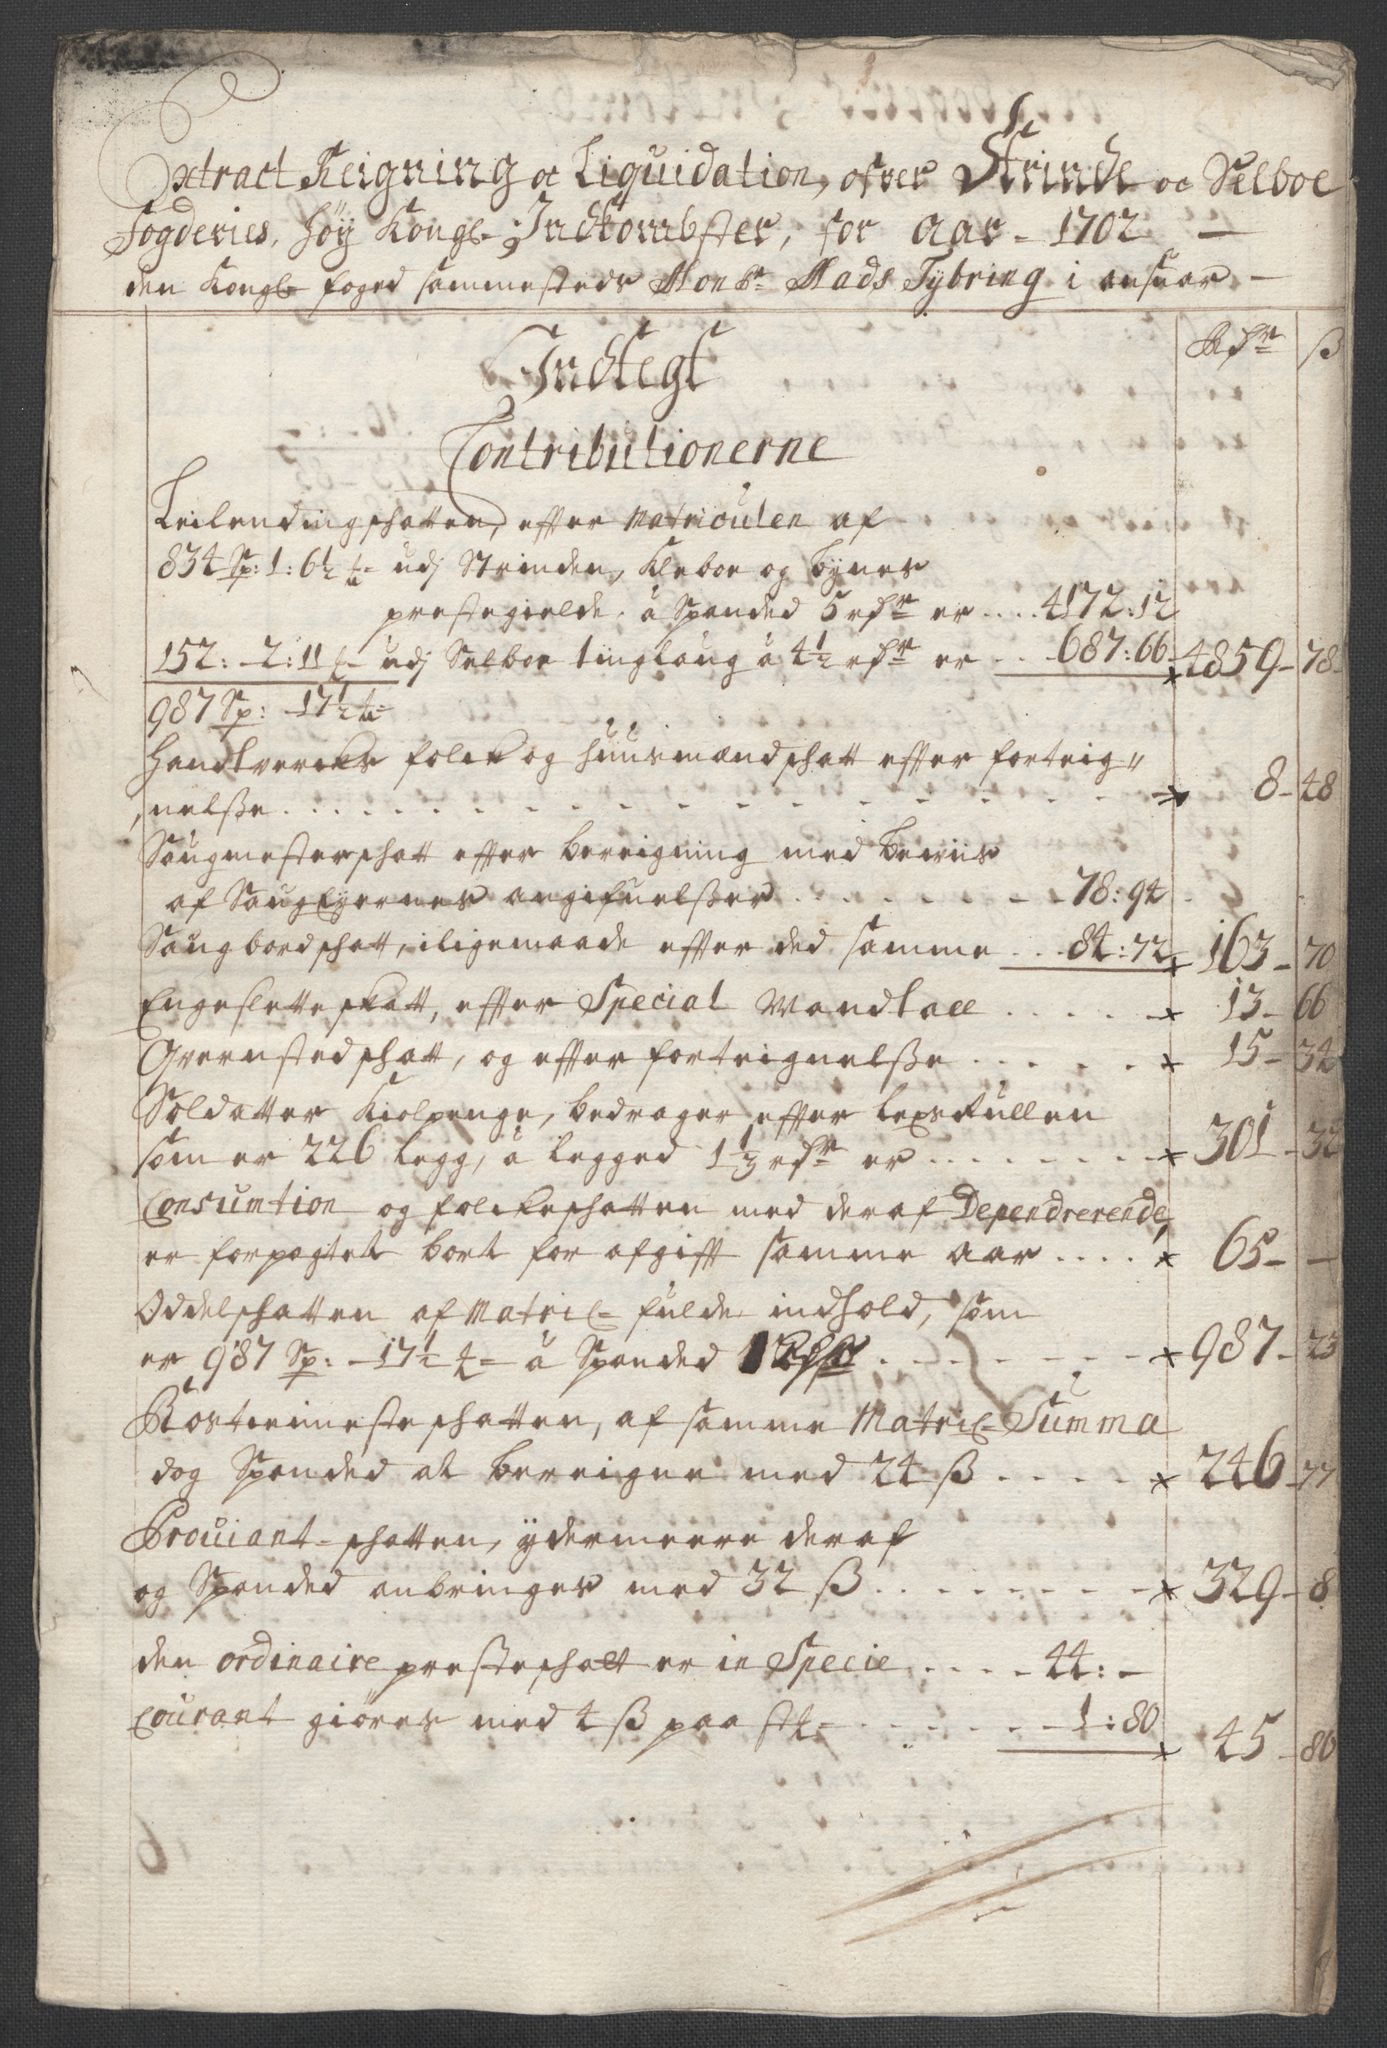 Extract Reigning oc Liquidation, ofver Strinde oc Selboe
Fogderies, høy Kongl- Indkombster, for Aar- 1702 —
den Kongl- foged sammesteds Monsr: Mads Tybring i ansvar —
Rdr ß
Indtegt
Contributionerne
Leilendingschatten, efter Matriculen af
834 Sp: 1: 6½ udj Strinden, Kleboe og Bynes
prestegielde, â Spanded 5 rdr er .... 4172:12
152: -2:11 udj Selboe tinglaug â 4½ rdr er ... 687:66 4859-78
987 Sp: -17½
Handtvercks folck og huusmændschatt efter forteig-
nelße . . . . . 8-48
Saugmesterschatt efter bereigning med beviis
af Saugeyernes angifvelßer . . . . . 78:94
Saugbordschatt, iligemaade efter ded samme ... 84:72 163-70
Engesletteskatt, efter Special Mandtall . . . . . 13-66
Qvernstedschatt, og efter forteignelße . . . . . 15-34
Soldatter Kiolpenge, bedrager efter legsrullen
som er 226 legg, â legged 1⅓ rdr er . . . . . 301-32
Consumtion og folckeschatten med deraf Dependrerende,
er forpagtet bort for afgift samme aar .... 65- -
Oddelschatten af Matricl- fulde indhold, som
er 987 Sp: -17½ â Spanded 1 Rdr . . . . . 987-23
Rostienisteschatten, af samme Matricl- Summa
dog Spanded at bereigne med 24 ß . . . . 246-77
Proviant-schatten, ydermeere deraf
og Spanded anbringes med 32 ß . . . . . 329-8
den ordinaire presteschatt er in Specie . . . . 44:-
Courant giøres med 4 ß paa st- . . . . . 1:80 45-80